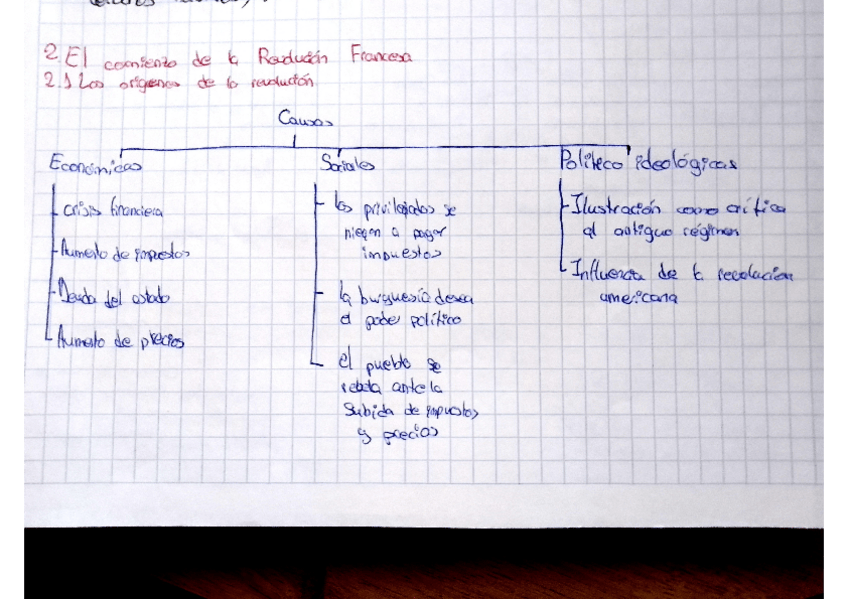 2 El comienzo de la Revolución Francesa
2.1 Los orígenes de la revolución
Causas
Económicas
- crisis financiera
- Aumento de impuestos
- Deuda del estado
- Aumento de precios
Sociales
- los privilegiados se
niegan a pagar
impuestos
- la burguesía desea
el poder político
- el pueblo se
rebela ante la
subida de impuestos
y precios
Político ideológicas
- Ilustración como crítica
al antiguo régimen
- Influencia de la revolución
americana